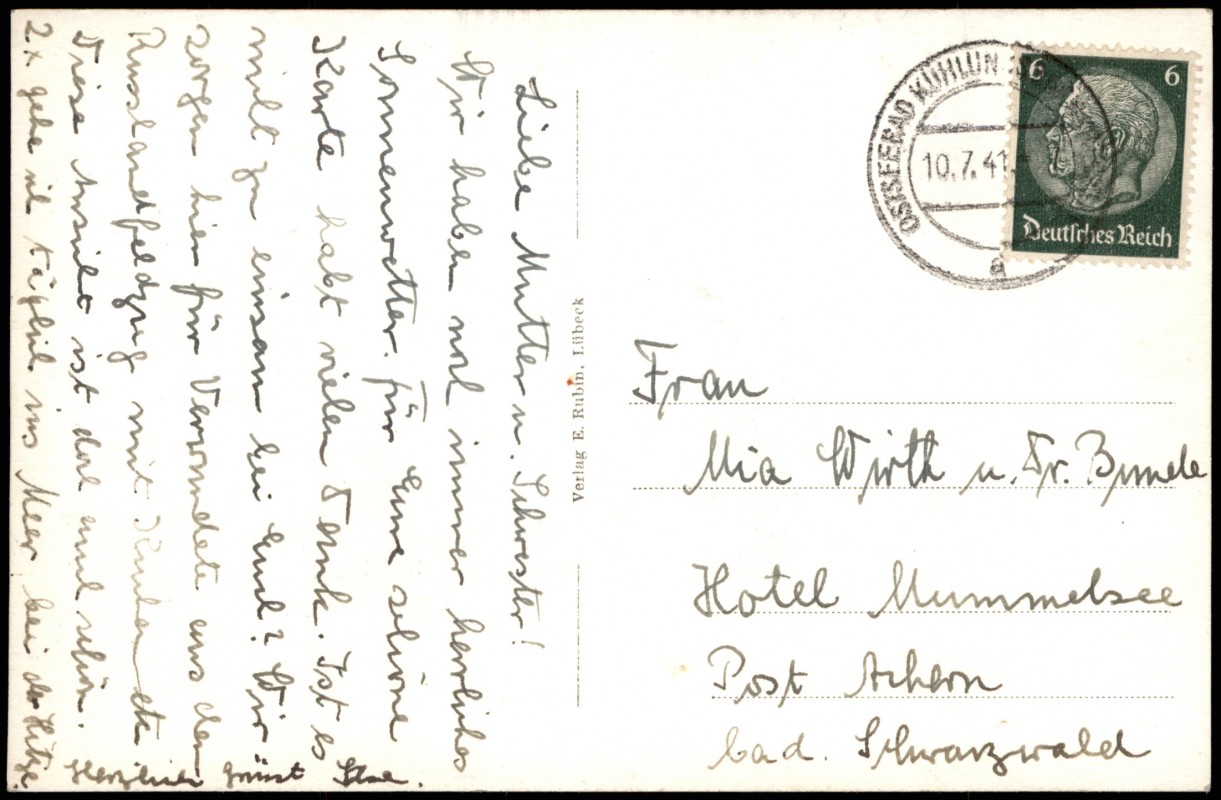 Liebe Mutter u. Schwester!
Wir haben noch immer herrliches
Sonnenwetter. Für Eure schöne
Karte habt vielen Dank. Ist es
nicht zu einsam bei Euch? Wir
sorgen hier für Verwundete aus dem
Russlandfeldzug mit
Diese Arbeit ist doch auch schön.
2 x gehe ich täglich ins Meer bei der Hitze.
Herzlich grüsst Ilse.
Verlag E. Rubin, Lübeck
OSTSEEBAD KÜHLUN
10.7.41
a
6 6
Deutsches Reich
Frau
Mia Wirth u. Fr.
Hotel Mummelsee
Post Achern
bad. Schwarzwald